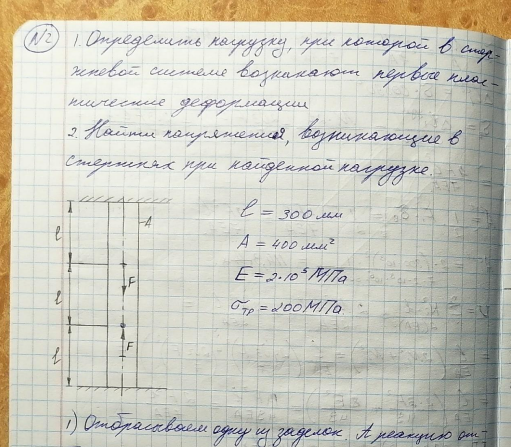 N2
1. Определить нагрузку, при которой в стер-
жневой системе возникают первые плас-
тические деформации
2. Найти напряжения, возникающие в
стержнях при найденной нагрузке.
l = 300 мм
A = 400 мм²
E = 2·10⁵ МПа
σтр = 200 МПа
A
l
F
l
F
l
1) Отбрасываем одну из заделок. А реакцию от-